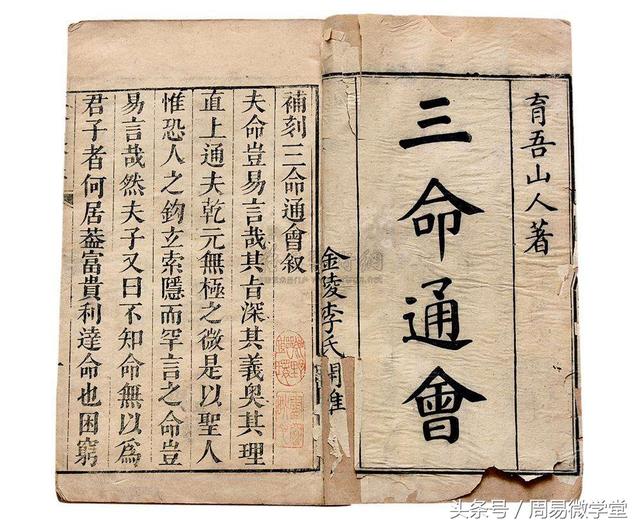 育吾山人著
三命通會
金陵李氏
補刻三命通會叙
夫命豈易言哉其旨深其義奧其理
直上通夫乾元無極之微是以聖人
惟恐人之鈎玄索隱而罕言之命豈
易言哉然夫子又曰不知命無以爲
君子者何居葢富貴利達命也困窮
头条号/周易微学堂